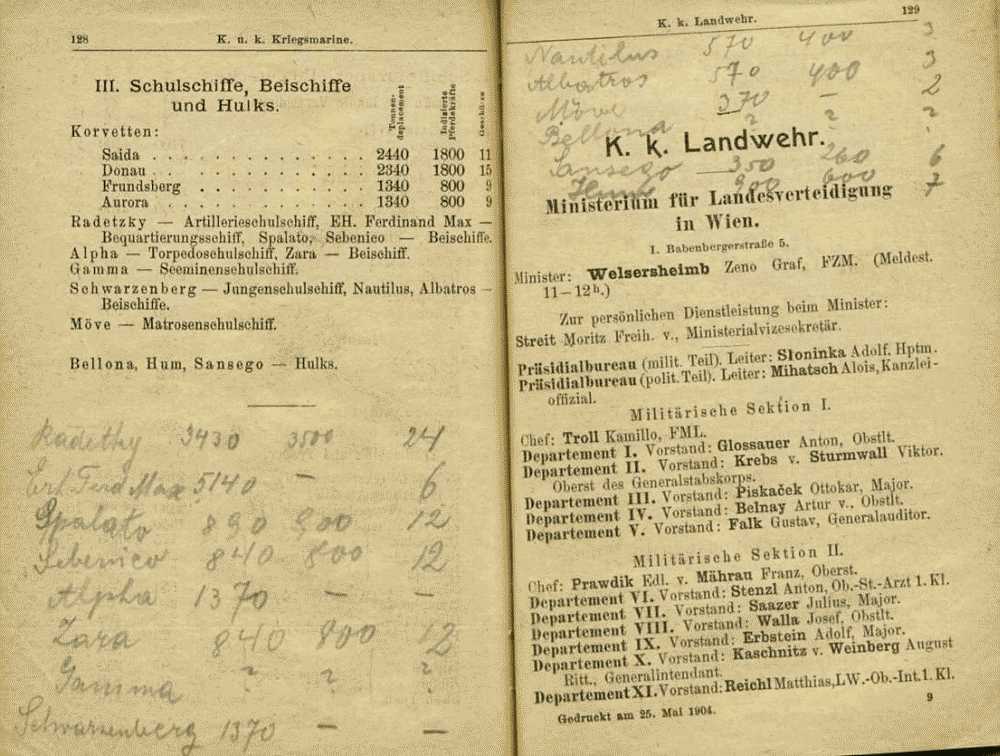 128
K. u. k. Kriegsmarine.
III. Schulschiffe, Beischiffe
und Hulks.
Tonnen-
deplacement
Indizierte
Pferdekräfte
Geschütze
Korvetten:
Saida . . . . . . . . . . . . . 2440 1800 11
Donau . . . . . . . . . . . . . 2340 1800 15
Frundsberg . . . . . . . . . . 1340 800 9
Aurora . . . . . . . . . . . . 1340 800 9
Radetzky — Artillerieschulschiff, EH. Ferdinand Max —
Bequartierungsschiff, Spalato, Sebenico — Beischiffe.
Alpha — Torpedoschulschiff, Zara — Beischiff.
Gamma — Seeminenschulschiff.
Schwarzenberg — Jungenschulschiff, Nautilus, Albatros —
Beischiffe.
Möve — Matrosenschulschiff.
Bellona, Hum, Sansego — Hulks.
Radetzky 3430 3500 24
Erh. Ferd Max 5140 — 6
Spalato 890 800 12
Sebenico 840 800 12
Alpha 1370 — —
Zara 840 800 2
Gamma ? ? ?
Schwarzenberg 1370 — —
K. k. Landwehr.
129
Nautilus 570 400 3
Albatros 570 400 3
Möve 370 — 2
Bellona ? ? ?
K. k. Landwehr.
Sansego 350 260 6
Hum 900 600 7
Ministerium für Landesverteidigung
in Wien.
I. Babenbergerstraße 5.
Minister: Welsersheimb Zeno Graf, FZM. (Meldest.
11—12h.)
Zur persönlichen Dienstleistung beim Minister:
Streit Moritz Freih. v., Ministerialvizesekretär.
Präsidialbureau (milit. Teil). Leiter: Słoninka Adolf. Hptm.
Präsidialbureau (polit. Teil). Leiter: Mihatsch Alois, Kanzlei-
offizial.
Militärische Sektion I.
Chef: Troll Kamillo, FML.
Departement I. Vorstand: Glossauer Anton, Obstlt.
Departement II. Vorstand: Krebs v. Sturmwall Viktor.
Oberst des Generalstabskorps.
Departement III. Vorstand: Piskaček Ottokar, Major.
Departement IV. Vorstand: Belnay Artur v., Obstlt.
Departement V. Vorstand: Falk Gustav, Generalauditor.
Militärische Sektion II.
Chef: Prawdik Edl. v. Mährau Franz, Oberst.
Departement VI. Vorstand: Stenzl Anton, Ob.-St.-Arzt 1. Kl.
Departement VII. Vorstand: Saazer Julius, Major.
Departement VIII. Vorstand: Walla Josef, Obstlt.
Departement IX. Vorstand: Erbstein Adolf, Major.
Departement X. Vorstand: Kaschnitz v. Weinberg August
Ritt., Generalintendant.
Departement XI. Vorstand: Reichl Matthias, LW.-Ob.-Int. 1. Kl.
Gedruckt am 25. Mai 1904.
9